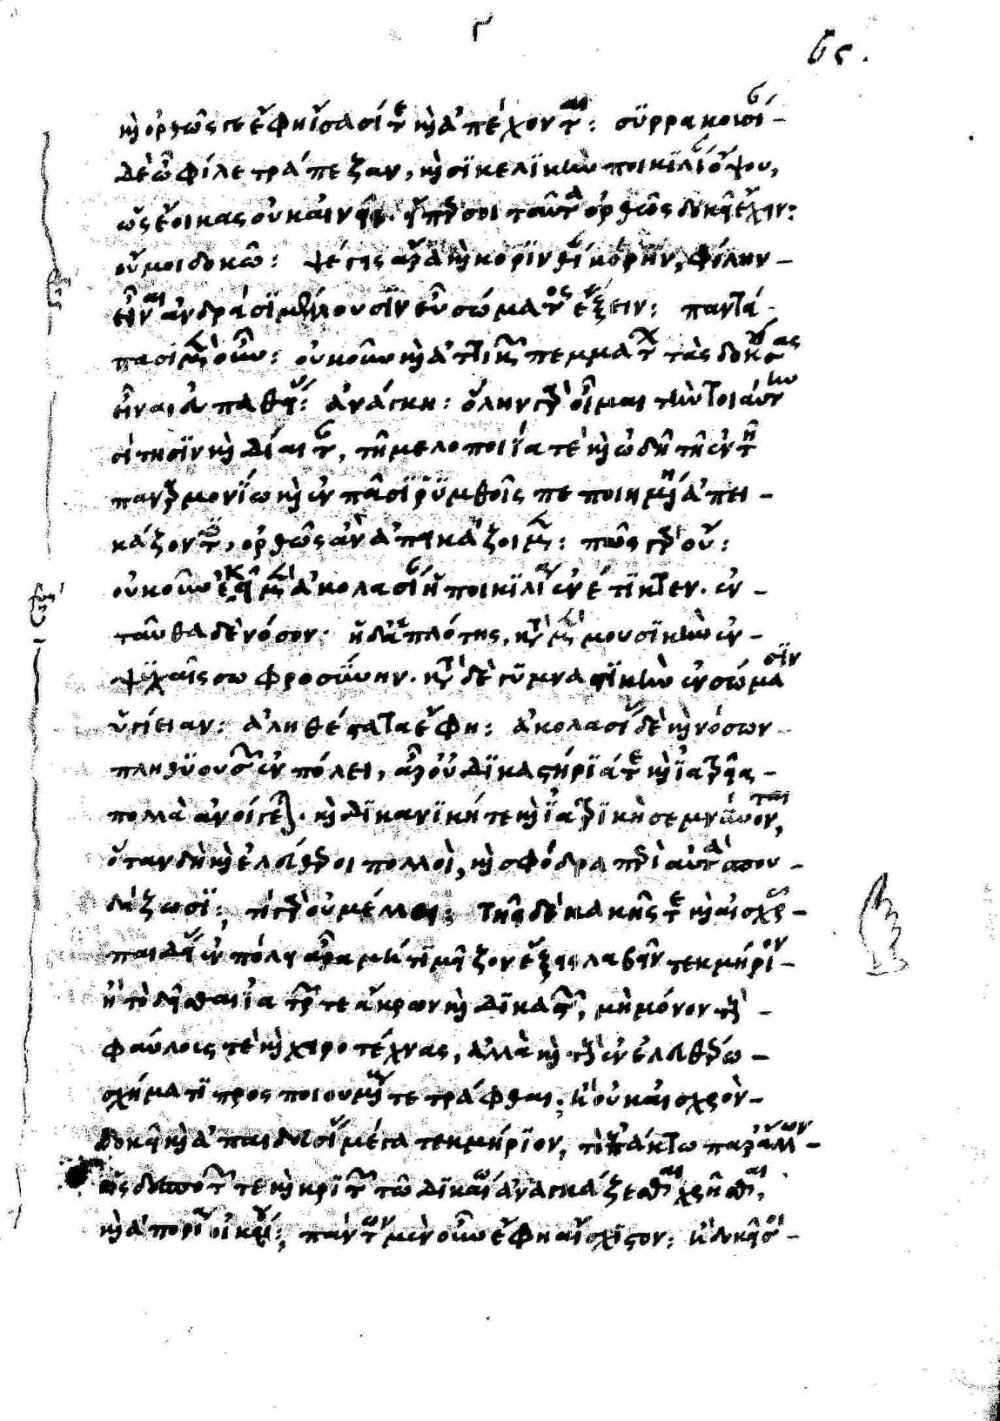 γ
65.
καὶ ὀρθῶς γε ἔφη ἴσασί τε καὶ ἀπέχονται: σϋρρακοσί-
δὲ ὦ φίλε τράπεζαν, καὶ σϊκελϊκὴν ποικιλίαν ὄψου,
ὡς ἔοικας οὐκ αἰνεῖς. εἴπερ σοι ταῦτα ὀρθῶς δοκεῖ ἔχειν:
οὔ μοι δοκῶ: ψέγεις ἄρα καὶ κορϊνθίαν κόρην, φίλην
εἶναι ἀνδράσϊ μέλλουσϊν εὖ σώματος ἕξειν: παντά-
πασι μὲν οὖν: οὐκοῦν καὶ ἀττικῶν πεμμάτων τὰς δοκούσας
εἶναι εὐπαθείας: ἀνάγκη: ὅλην γὰρ οἶμαι τὴν τοιαύτην
σίτησϊν καὶ δίαιταν, τῇ μελοποιΐα τε καὶ ὠδῇ τῇ ἐν τῷ
παναρμονΐω καὶ ἐν πᾶσϊ ῥϋθμοῖς πεποιημένη ἀπει-
κάζοντες, ὀρθῶς ἂν ἀπεικάζοιμεν: πῶς γὰρ οὔ:
οὐκοῦν ἐκεῖ μὲν ἀκολασίαν ἡ ποικϊλία ἐνέτϊκτεν. ἐν-
ταῦθα δὲ νόσον: ἡ δὲ ἁπλότης, κατὰ μὲν μουσϊκὴν ἐν
ψϋχαῖς σωφροσύνην. κατὰ δὲ γϋμναστϊκὴν ἐν σώμασϊν
ὑγίειαν: ἀληθέστατα ἔφη: ἀκολασίας δὲ καὶ νόσων
πληθϋουσῶν ἐν πόλει, ἆρ' οὐ δϊκαστήρϊά τε καὶ ἰατρεῖα
πολλὰ ἀνοίγεται. καὶ δϊκανϊκή τε καὶ ἰατρϊκὴ σεμνύνονται,
ὅταν δὴ καὶ ἐλεύθεροι πολλοὶ, καὶ σφόδρα περὶ αὐτὰ σπου-
δάζωσϊ: τί γὰρ οὐ μέλλει: τῆς δὲ κακῆς τε καὶ αἰσχρᾶς
παιδείας ἐν πόλει ἆρα μή τϊ μεῖζον ἕξεις λαβεῖν τεκμήριον
ἢ τὸ δεῖσθαι ἰατρῶν τε ἄκρων καὶ δϊκαστῶν, μὴ μόνον τοὺς
φαύλους τε καὶ χειροτέχνας, ἀλλὰ καὶ τοὺς ἐν ἐλευθέρω
σχήματϊ προσποιουμένους τετράφθαι: ἢ οὐκ αἰσχρὸν
δοκεῖ καὶ ἀπαιδευσίας μέγα τεκμήρϊον, τὸ ἐπάκτω παρ' ἄλλων
ὡς δεσποτῶν τε καὶ κριτῶν τῶ δϊκαίω ἀναγκάζεσθαι χρῆσθαι,
καὶ ἀπορία οἰκείων: πάντων μὲν οὖν ἔφη αἴσχϊστον: ἢ δοκεῖ σοι